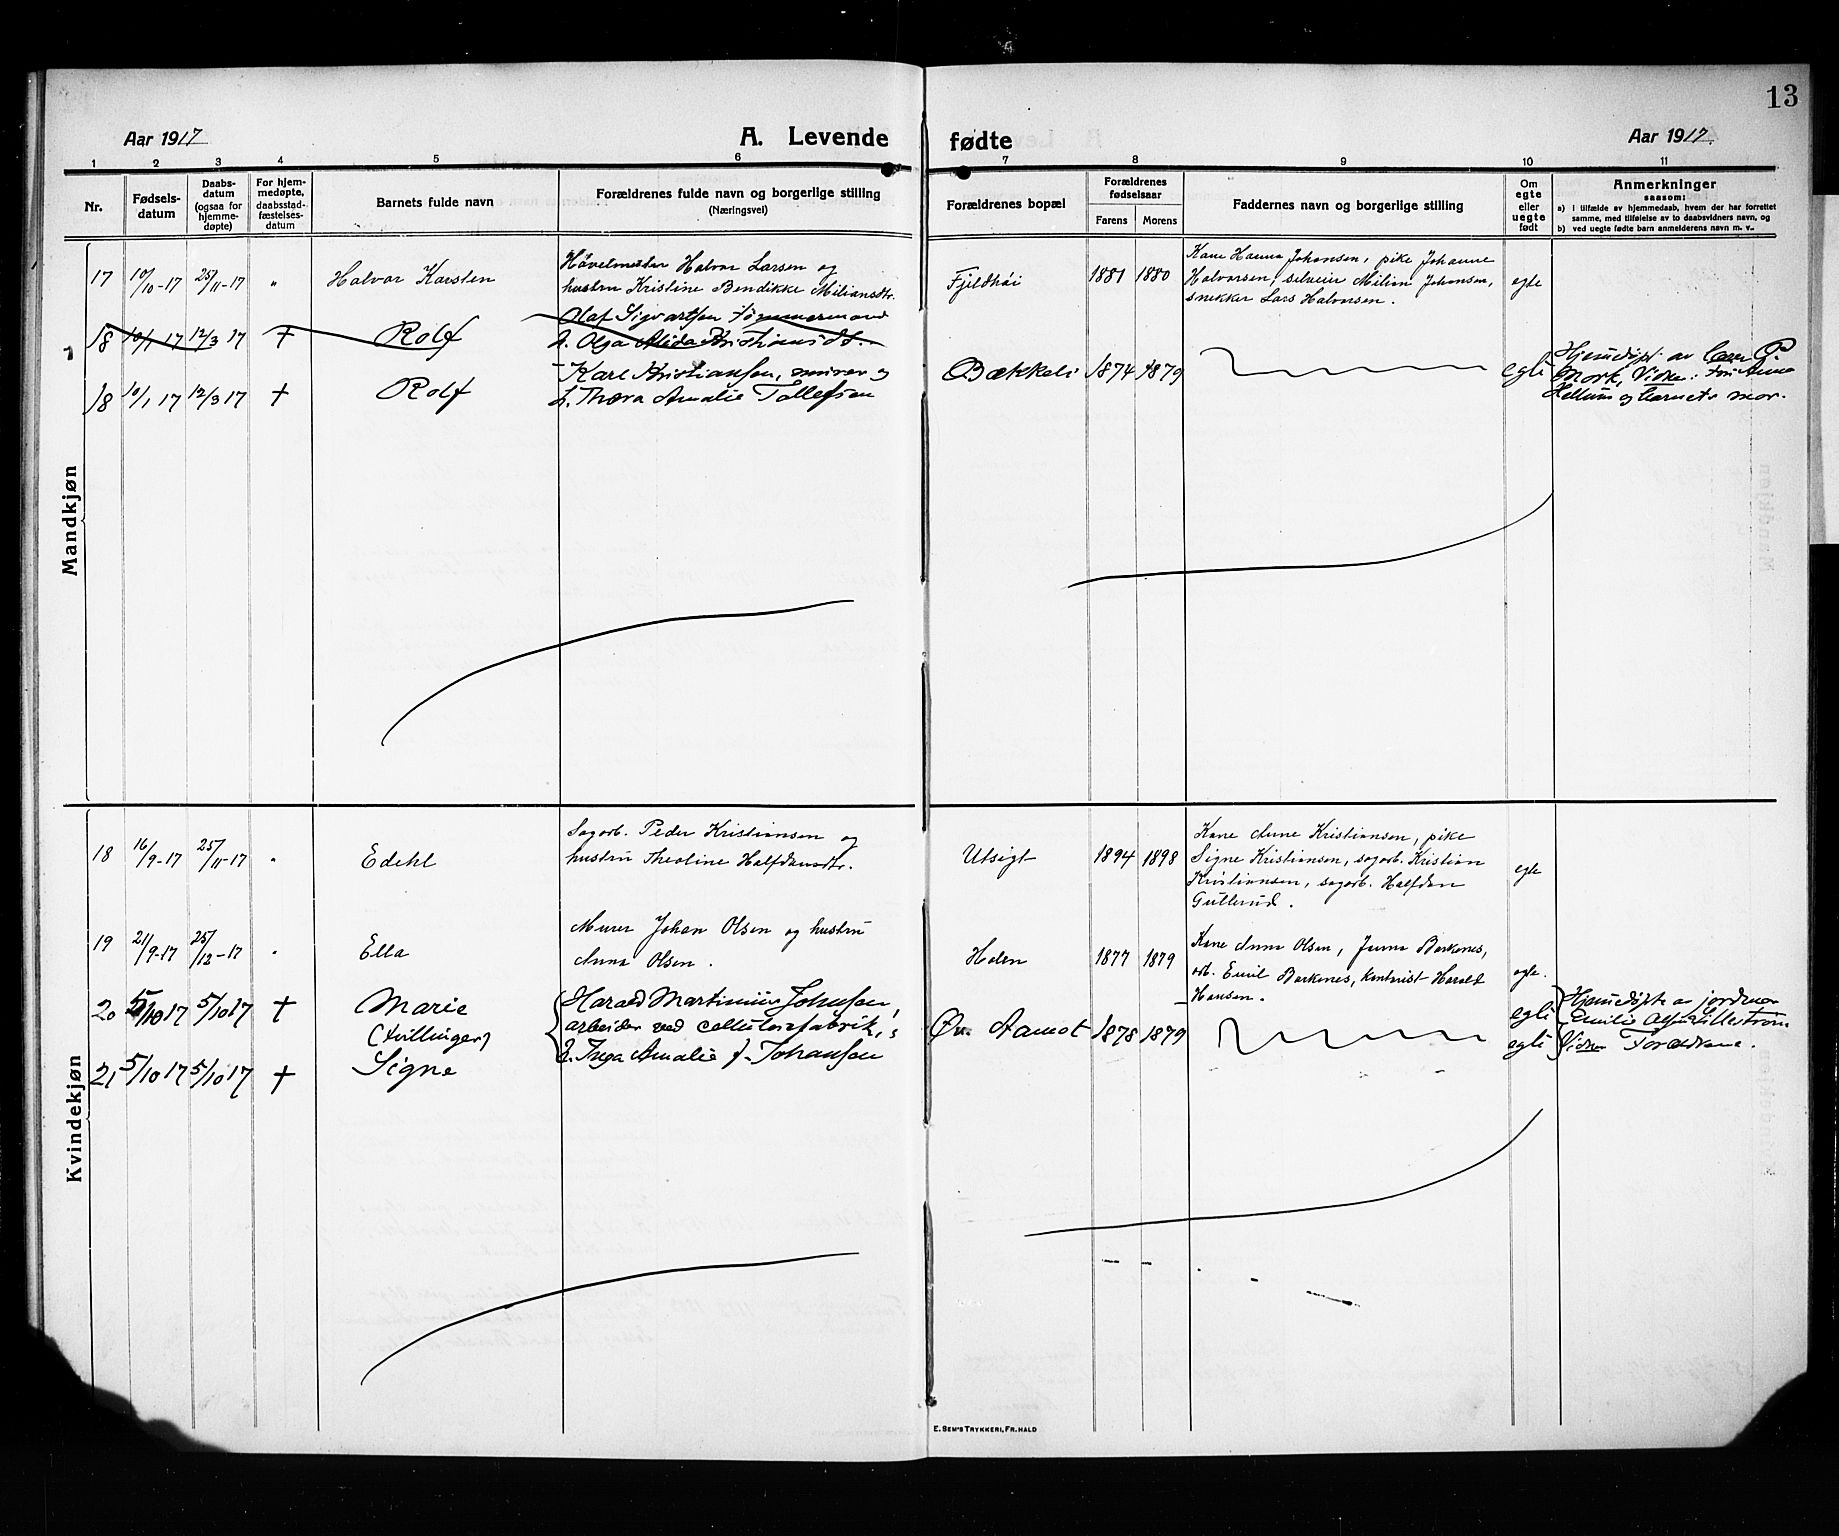 13
Aar 1917
A. Levende fødte
Aar 1917.
1 2 3 4 5 6 7 8 9 10 11
Nr.
Fødsels-
datum
Daabs-
datum
(ogsaa for
hjemme-
døpte)
For hjem-
medøpte,
daabsstad-
fæstelses-
datum
Barnets fulde navn
Forældrenes fulde navn og borgerlige stilling
(Næringsvei)
Forældrenes bopæl
Forældrenes
fødselsaar
Farens Morens
Faddernes navn og borgerlige stilling
Om
egte
eller
uegte
født
Anmerkninger
saasom:
a) i tilfælde av hjemmedaab, hvem der har forrettet
samme, med tilføielse av to daabsvidners navn, og
b) ved uegte fødte barn anmelderens navn m. v.
Mandkjøn
17 10/10-17 25/11-17 " Halvar Karsten
Høvelmester Halvar Larsen og
hustru Kristine Bendikke Miliansdtr.
Fjeldhøi 1881 1880
Kone Hanna Johansen, pike Johanne
Halvorsen, selveier Milian Johansen,
snekker Lars Halvorsen.
egte
18 10/1 17 12/3 17 + Rolf
Olaf Sigvartsen Tømmermand
H. Olga Alida Kristiansdt.
18 10/1 17 12/3 17 + Rolf
Karl Kristiansen, murer og
H. Thora Amalie Tollefsen
Bækkeli 1874 1879
egte
Hjemedøpt av
Mork, Vidner: Anna
Hellum og barnets mor.
Kvindekjøn
18 16/9-17 25/11-17 " Edehl
Sagarb. Peder Kristiansen og
hustru Theoline Halfdansdtr.
Utsigt 1894 1898
Kone Anne Kristiansen, pike
Signe Kristiansen, sagarb. Kristian
Kristiansen, sagarb. Halfdan
Gullerud.
egte
19 21/9-17 25/12-17 " Ella
Murer Johan Olsen og hustru
Anna Olsen.
Holen 1877 1879
Kone Anna Olsen, Barkenes,
arb. Emil Barkenes, kontorist Harald
Hansen.
egte.
20 5/10 17 5/10 17 + Marie
(tvillinger)
Harald Martinius Johansen,
arbeider ved cellulosefabrik,
H. Inga Amalie f. Johansen
Øv. Aamot 1878 1879
egte
Hjemedøpte av jordmor
Emilie Lillestrøm
21 5/10 17 5/10 17 + Signe
egte
Vidner Forældrene.
E. SEM'S TRYKKERI, FR.HALD